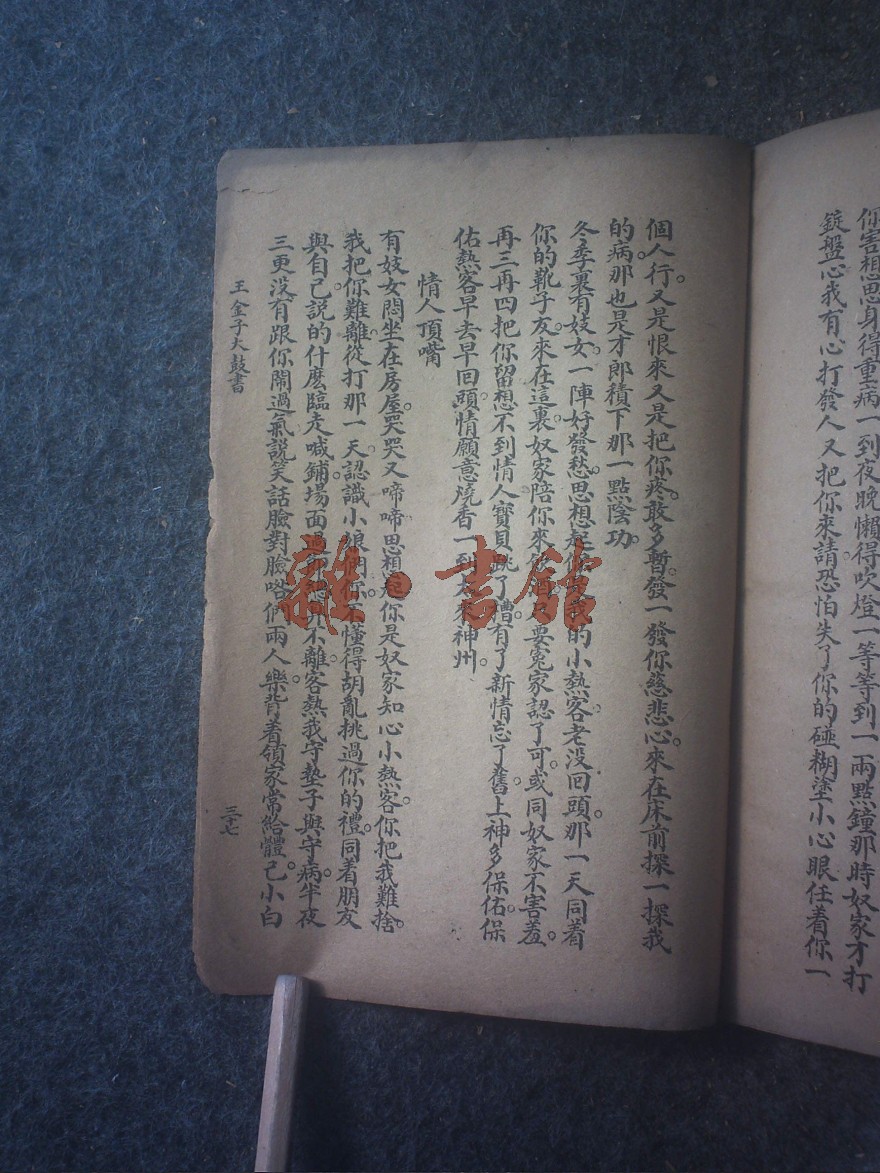 你害想思身得重病一到夜晚懶得吹燈一等等到一兩點鐘那時奴家才打
錠盤心我有心打發人又把你來請。恐怕失了你的碰糊塗小心眼任着你一
個人行。又是恨來又是把你疼。敢多暫發一發你慈悲心。來在床前探一探我
的病。那也是才郎積下那一點陰功。
冬季裏有妓女。一陣好發愁。思想起你是我的小熱客老沒回頭。那一天同着
你的靴子友來在這裏。奴家陪你來要冤家認了可。或同奴家不害羞。
再三再四把你留想不到情人寶貝跳了槽。有了新情忘了舊。上神多保佑。保
佑熱客早去早回頭。情願意燒香一到神州。
情人頂嘴
有妓女悶坐在房屋。哭哭又啼啼思想起你是奴家知心小熱客。你把我難捨。
我把你難離。從打那一天。認識小娘們你不懂得胡亂挑過你的禮。同着朋友
與自己說的什麽臨走喊鋪場面過離。客熱我守墊子與守病。半夜
三更沒有跟你鬧過氣。說笑話臉對臉咯們兩人樂。背着領家常給體己。小白
王金子大鼓書
三十七
雜·書館